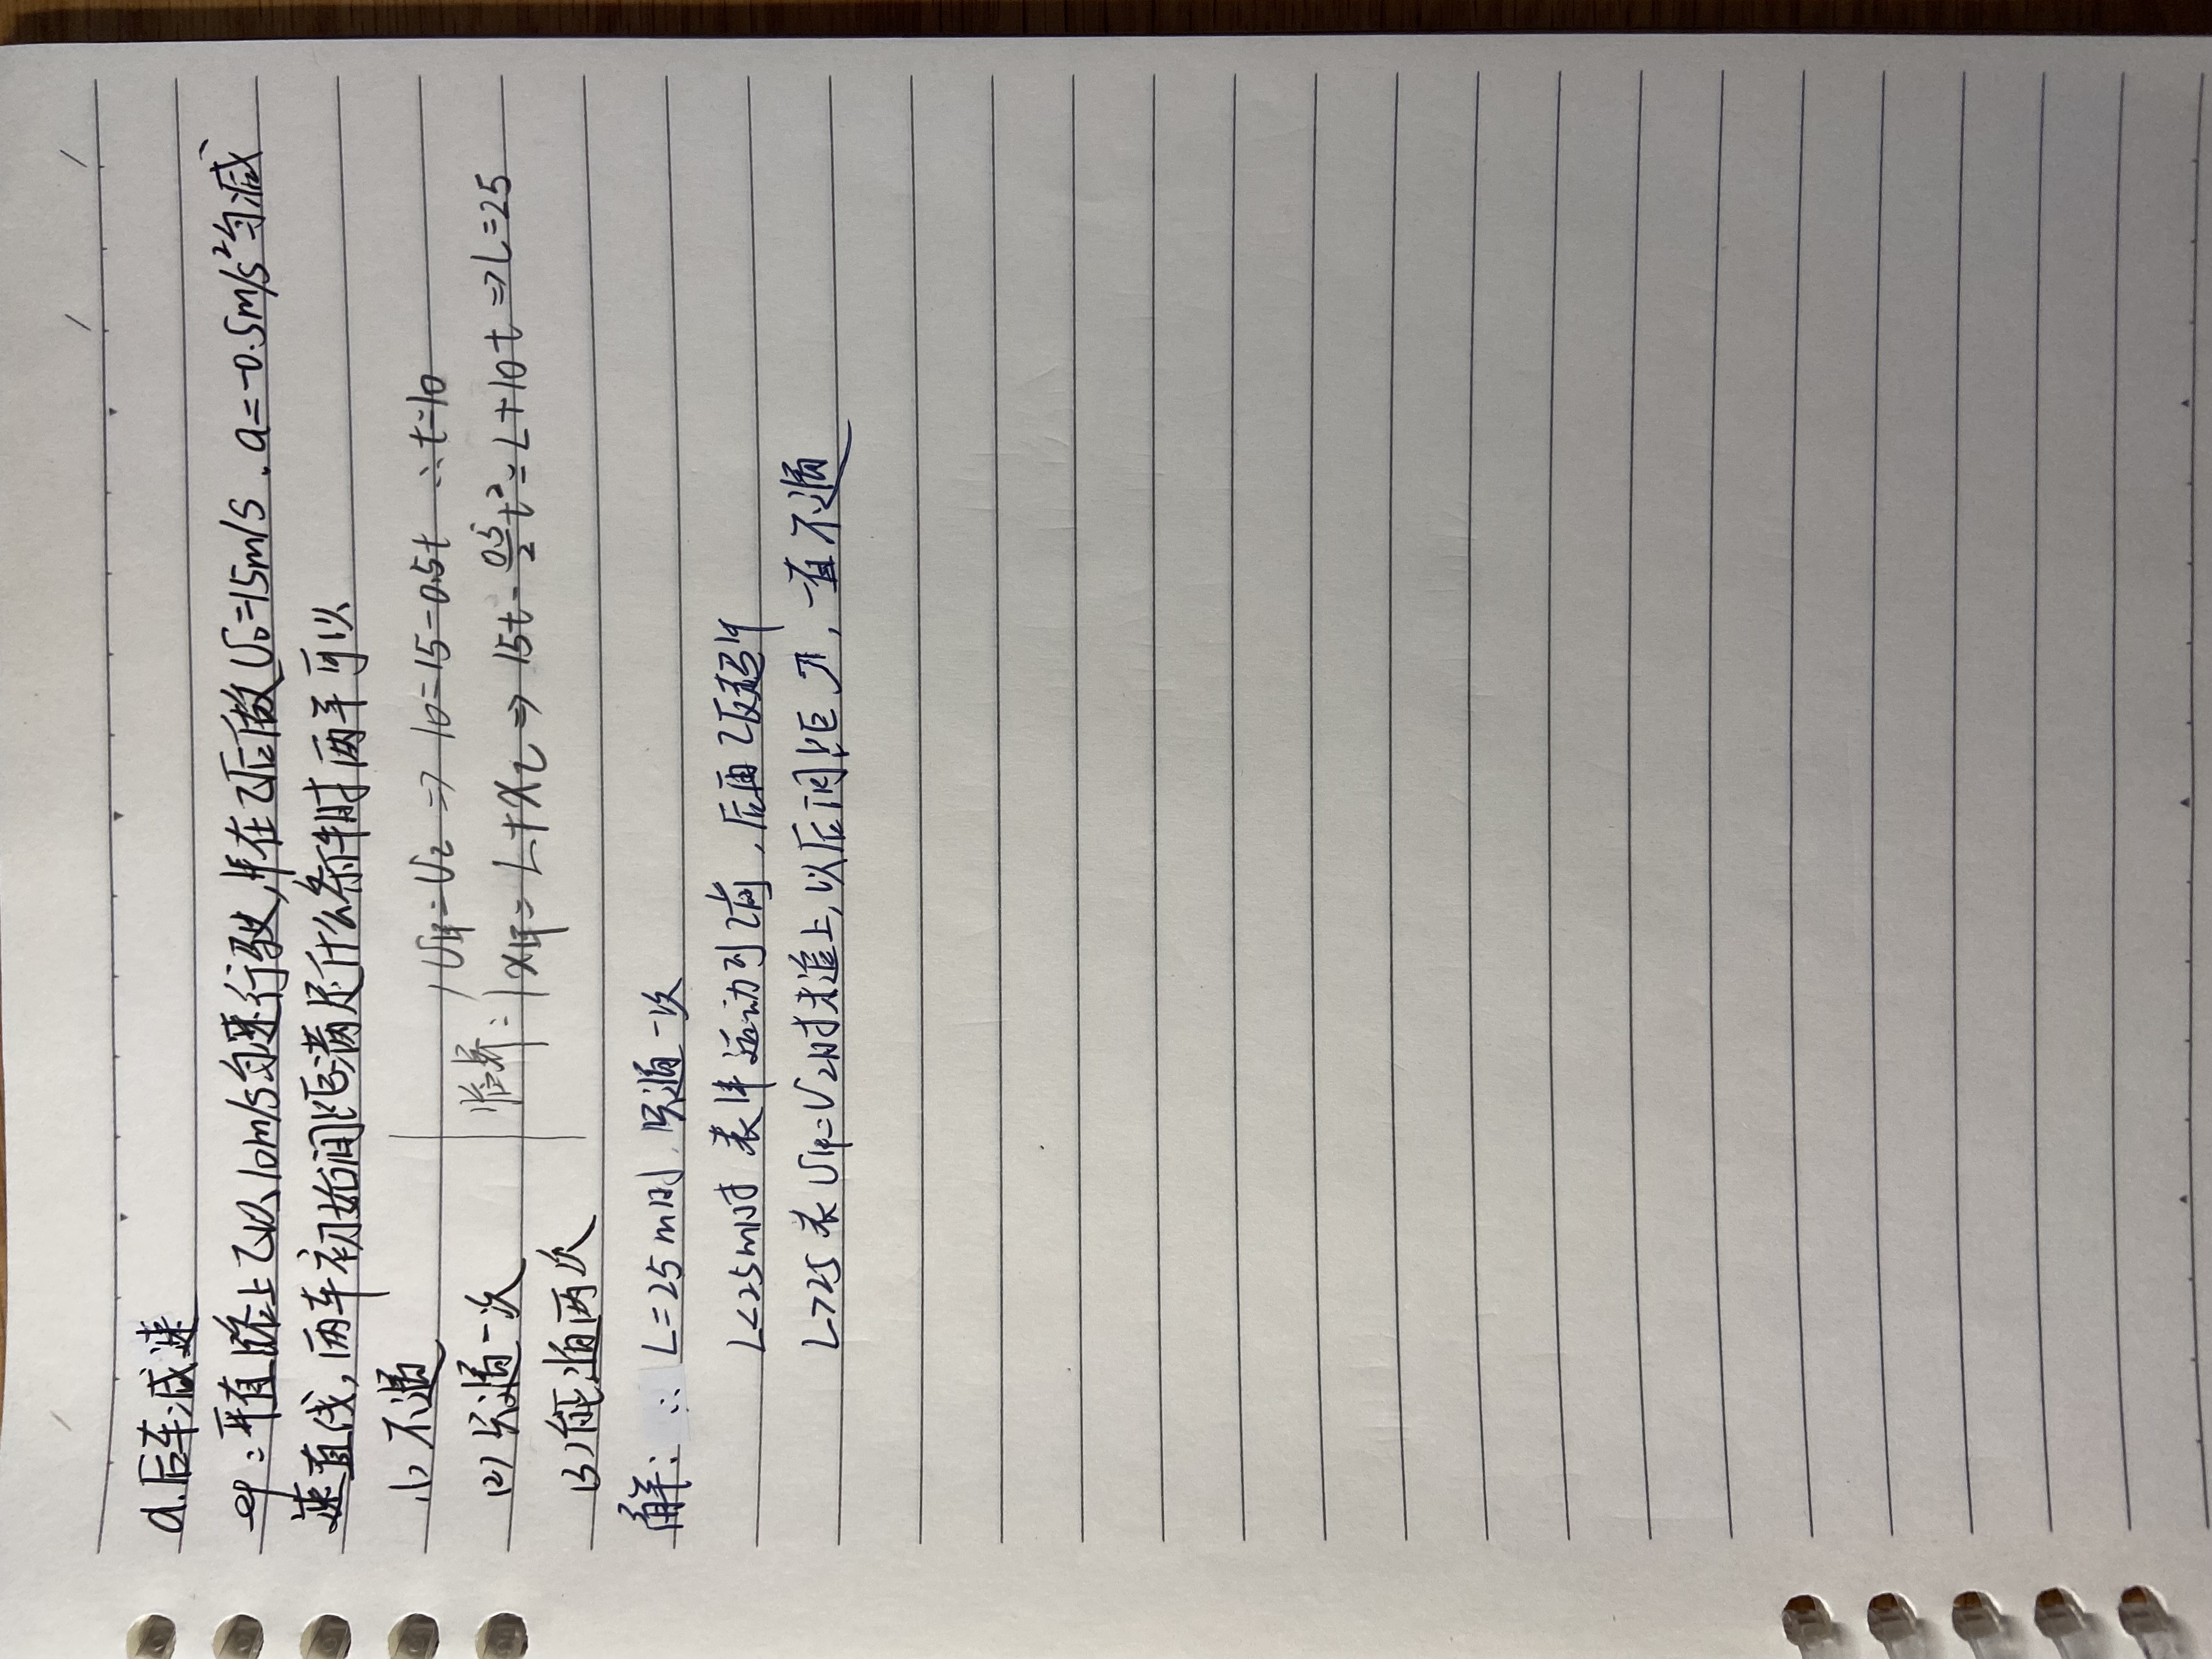 a.后车减速
eg:平直路上乙以10m/s匀速行驶,甲在乙后做U₀=15m/s.a=-0.5m/s²匀减
速直线,两车初始间距满足什么条件时两车可以
(1)不遇
(2)只遇一次
(3)能遇两次
临界: U甲=U乙 => 10=15-0.5t ∴t=10
X甲=L+X乙 => 15t-0.5/2t²=L+10t => L=25
解: ∴ L=25m时,只遇一次
L<25m时 表甲运动到乙前,后面乙反超甲
L>25 表U甲=U乙时未追上,以后间距才,一直不遇